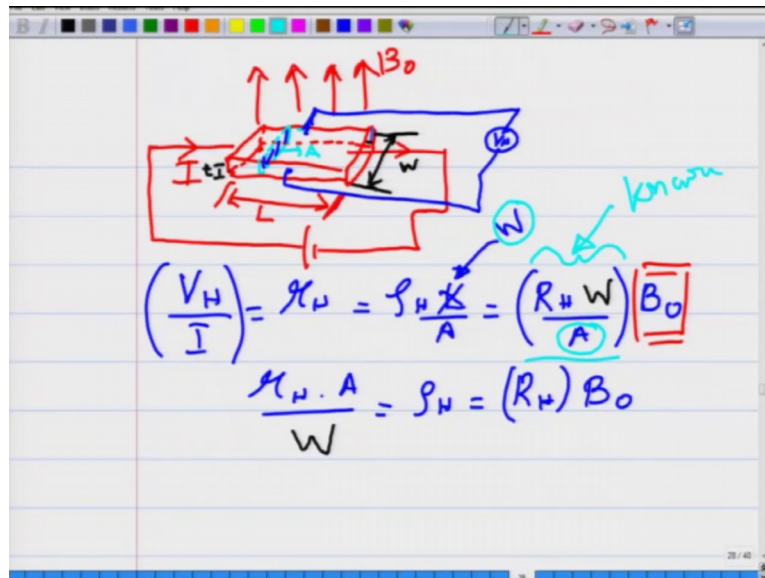 B₀
V_H
A
I
t
W
L
W
known
(V_H / I) = r_H = ρ_H L / A = (R_H W / A) B₀
r_H . A / W = ρ_H = (R_H) B₀
28 / 40